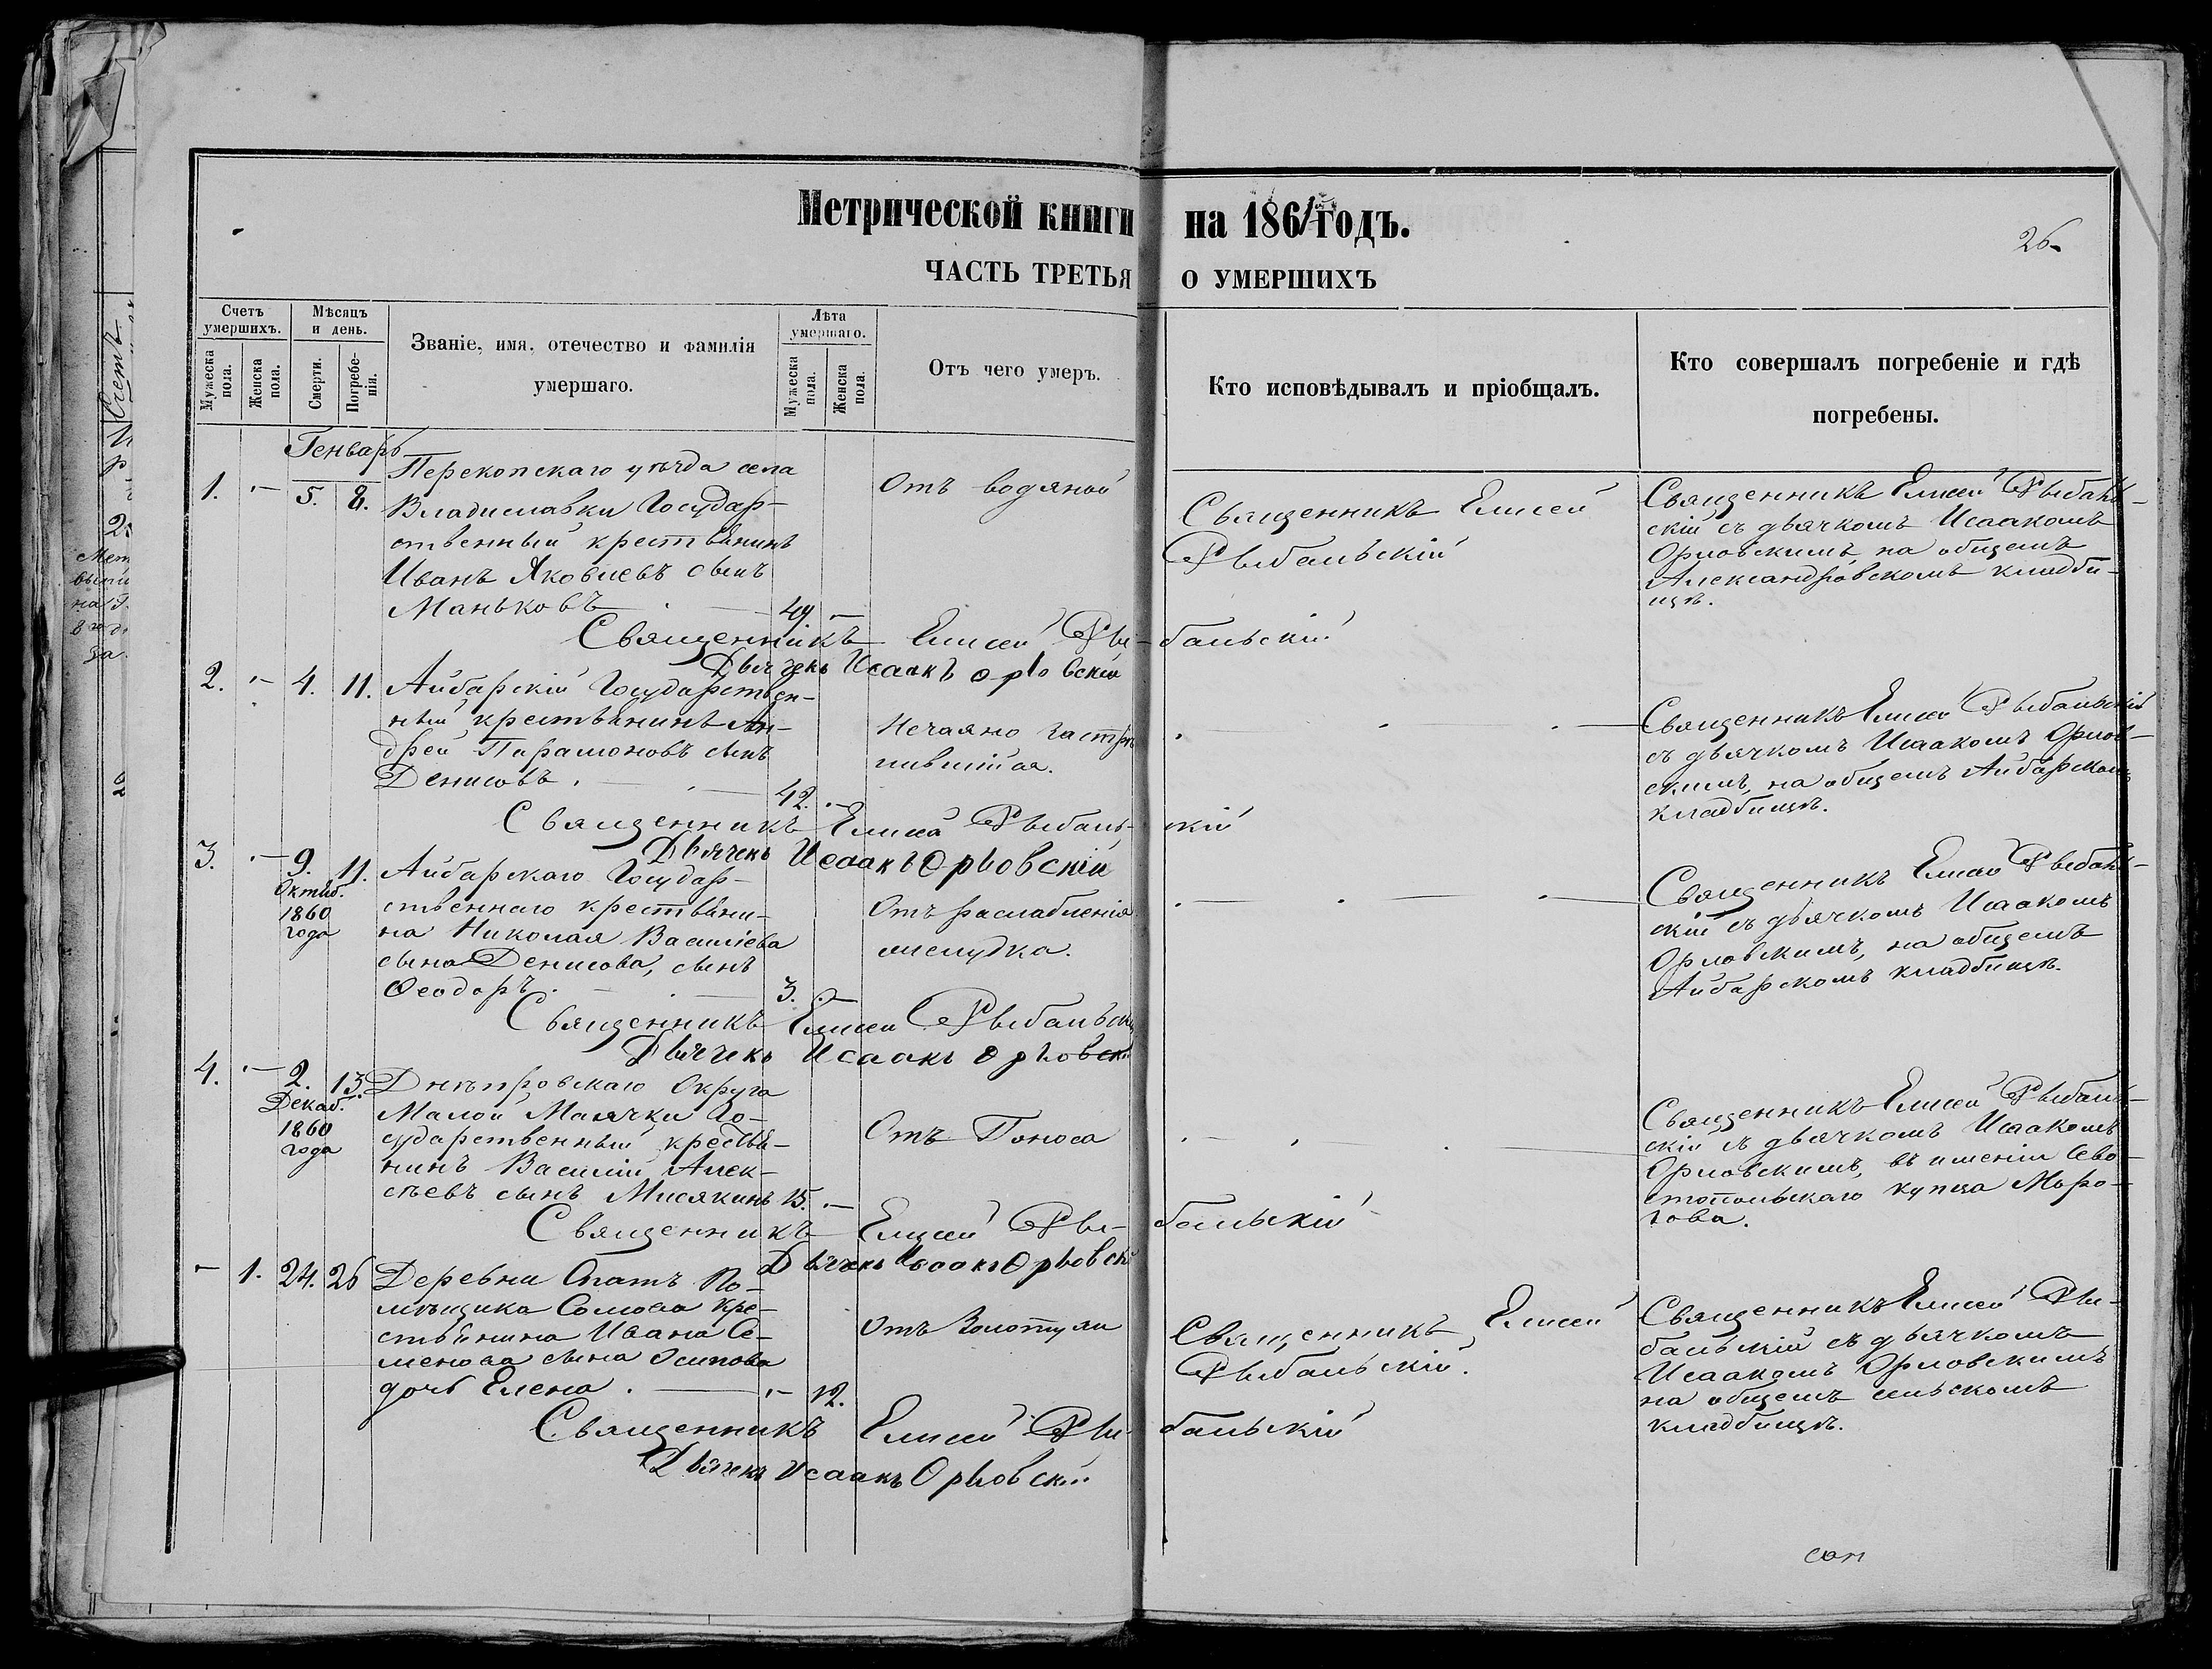 Метрической книги на 1861 годъ.
26
ЧАСТЬ ТРЕТЬЯ О УМЕРШИХЪ
Счетъ умершихъ.
Мужеска пола.
Женска пола.
Мѣсяцъ и день.
Смерти.
Погребенія.
Званіе, имя, отечество и фамилія
умершаго.
Лѣта умершаго.
Мужеска пола.
Женска пола.
Отъ чего умеръ.
Кто исповѣдывалъ и пріобщалъ.
Кто совершалъ погребеніе и гдѣ
погребены.
Генварь
1. - 5. 8.
Перекопскаго уѣзда села
Владиславки Государ-
ственный крестьянинъ
Иванъ Яковлевъ сынъ
Маньковъ 49. -
Отъ водяной
Священникъ Елисей
Рыбальскій
Священникъ Елисей Рыбаль-
скій съ дьячкомъ Исаакомъ
Орловскимъ на общемъ
Александровскомъ кладби-
щѣ.
Священникъ Елисей Рыбальскій
Дьячекъ Исаакъ Орловскій
2. - 4. 11.
Айбарскій Государствен-
ный крестьянинъ Ан-
дрей Парамоновъ сынъ
Денисовъ. 42. -
Нечаяно застрѣ
лившійся.
Священникъ Елисей Рыбальскій
съ дьячкомъ Исаакомъ Орлов-
скимъ, на общемъ Айбарскомъ
кладбищѣ.
Священникъ Елисей Рыбальскій
Дьячекъ Исаакъ Орловскій
3. - 9. 11.
Октяб.
1860
года
Айбарскаго Государ-
ственнаго крестьяни-
на Николая Василіева
сына Денисова, сынъ
Ѳеодоръ. 3. -
Отъ раслабленія
желудка.
Священникъ Елисей Рыбаль-
скій съ дьячкомъ Исаакомъ
Орловскимъ, на общемъ
Айбарскомъ кладбищѣ.
Священникъ Елисей Рыбальскій
Дьячекъ Исаакъ Орловскій
4. - 2. 13.
Декаб.
1860
года
Днѣпровскаго Округа
Малой Маячки Го-
сударственный крестья-
нинъ Василій Алек-
сѣевъ сынъ Мисякинъ 15. -
Отъ Поноса
Священникъ Елисей Рыбаль-
скій съ дьячкомъ Исаакомъ
Орловскимъ, въ имѣніи Сева-
стопольскаго купца Моро-
зова.
Священникъ Елисей Рыбальскій
Дьячекъ Исаакъ Орловскій
- 1. 24. 26
Деревни Спатъ По-
мѣщика Сомова кре-
стьянина Ивана Се-
менова сына Осипова
дочь Елена. - 12.
Отъ Золотухи
Священникъ Елисей
Рыбальскій.
Священникъ Елисей Ры-
бальскій съ дьячкомъ
Исаакомъ Орловскимъ
на общемъ сельскомъ
кладбищѣ.
Священникъ Елисей Рыбальскій
Дьячекъ Исаакъ Орловскій